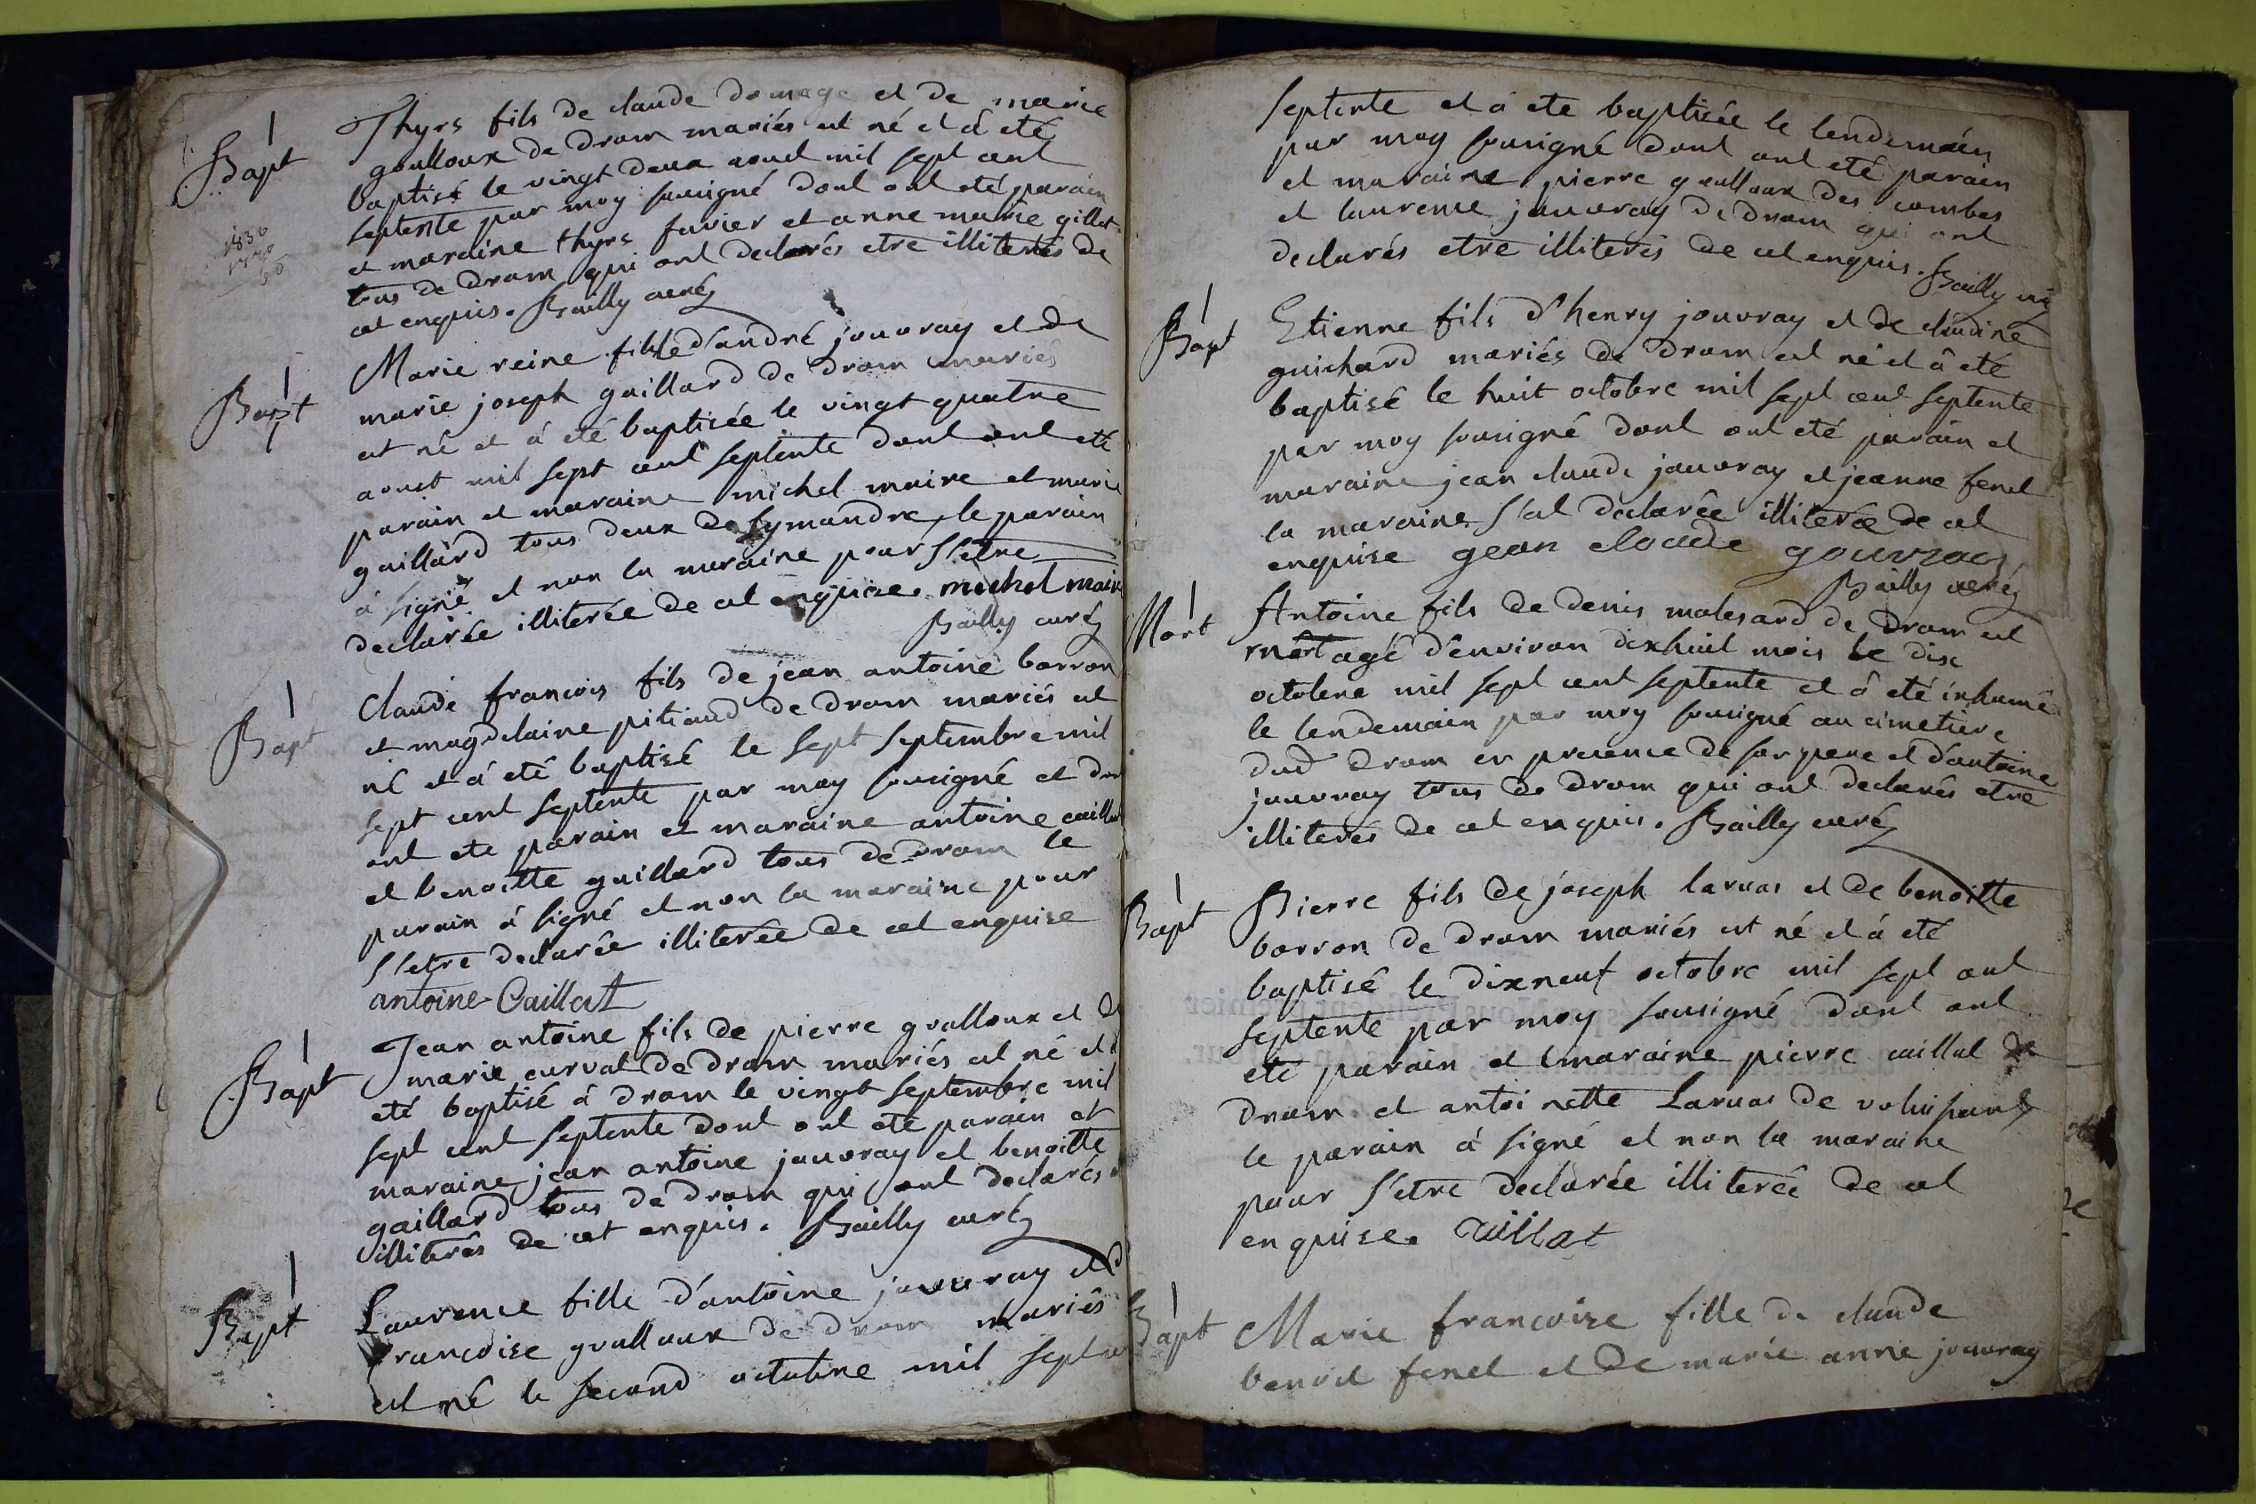 Bapt
Thyrs fils de claude domage et de marie
goulloux de dram mariés est né et à eté
baptisé le vingt deux aoust mil sept cent
septente par moy sousigné dont ont eté parain
et maraine thyrs favier et anne marie gillet
tous de dram qui ont declarés etre illiterés de
cet enquis. Bailly curé
1836
1770
Bapt
Marie reine fille d'andré jouvray et de
marie joseph gaillard de dram mariés
est né et à eté baptisée le vingt quatre
aoust mil sept cent septente dont ont eté
parain et maraine michel maire et marie
gaillard tous deux de symandre, le parain
à signé et non la maraine pour s'etre
declarée illiterée de cet enquise. michel maire
Bailly curé
Bapt
Claude francois fils de jean antoine borron
et magdelaine pitiaud de dram mariés est
né et à eté baptisé le sept septembre mil
sept cent septente par moy sousigné et dont
ont ete parain et maraine antoine caillat
et benoitte gaillard tous de dram le
parain à signé et non la maraine pour
s'etre declarée illiterée de cet enquise
antoine Caillat
Bapt
Jean antoine fils de pierre goulloux et de
marie curval de dram mariés est né et à
eté baptisé à dram le vingt septembre mil
sept cent septente dont ont eté parain et
maraine jean antoine jouvray et benoitte
gaillard tous de dram qui ont declarés
illiterés de cet enquis. Bailly curé
Bapt
Laurence fille d'antoine jouvray et d
francoise goulloux de dram mariés
est né le second octobre mil sept cent
septente et à ete baptisée le lendemain
par moy sousigné dont ont eté parain
et maraine pierre goulloux des combes
et laurence jouvray de dram qui ont
declarés etre illiterés de cet enquis. Bailly curé
Bapt
Etienne fils d'henry jouvray et de claudine
guichard mariés de dram est né et à eté
baptisé le huit octobre mil sept cent septente
par moy sousigné dont ont eté parain et
maraine jean claude jouvray et jeanne fenet
la maraine s'est declarée illiterée de cet
enquise gean cloude gouvray
Bailly curé
Mort
Antoine fils de denis malesard de dram est
mort agé d'environ dixhuit mois le dix
octobre mil sept cent septente et à eté inhumé
le lendemain par moy sousigné au cimetiere
dud dram en presence de son pere et d'antoine
jouvray tous de dram qui ont declarés etre
illiterés de cet enquis. Bailly curé
Bapt
Pierre fils de joseph laruas et de benoitte
borron de dram mariés est né et à eté
baptisé le dixneuf octobre mil sept cent
septente par moy sousigné dont ont
eté parain et maraine pierre caillat de
dram et antoinette Laruas de
le parain à signé et non la maraine
pour s'etre declarée illiterée de cet
enquise. Caillat
Bapt
Marie francoise fille de claude
benoit fenet et de marie anne jouvray